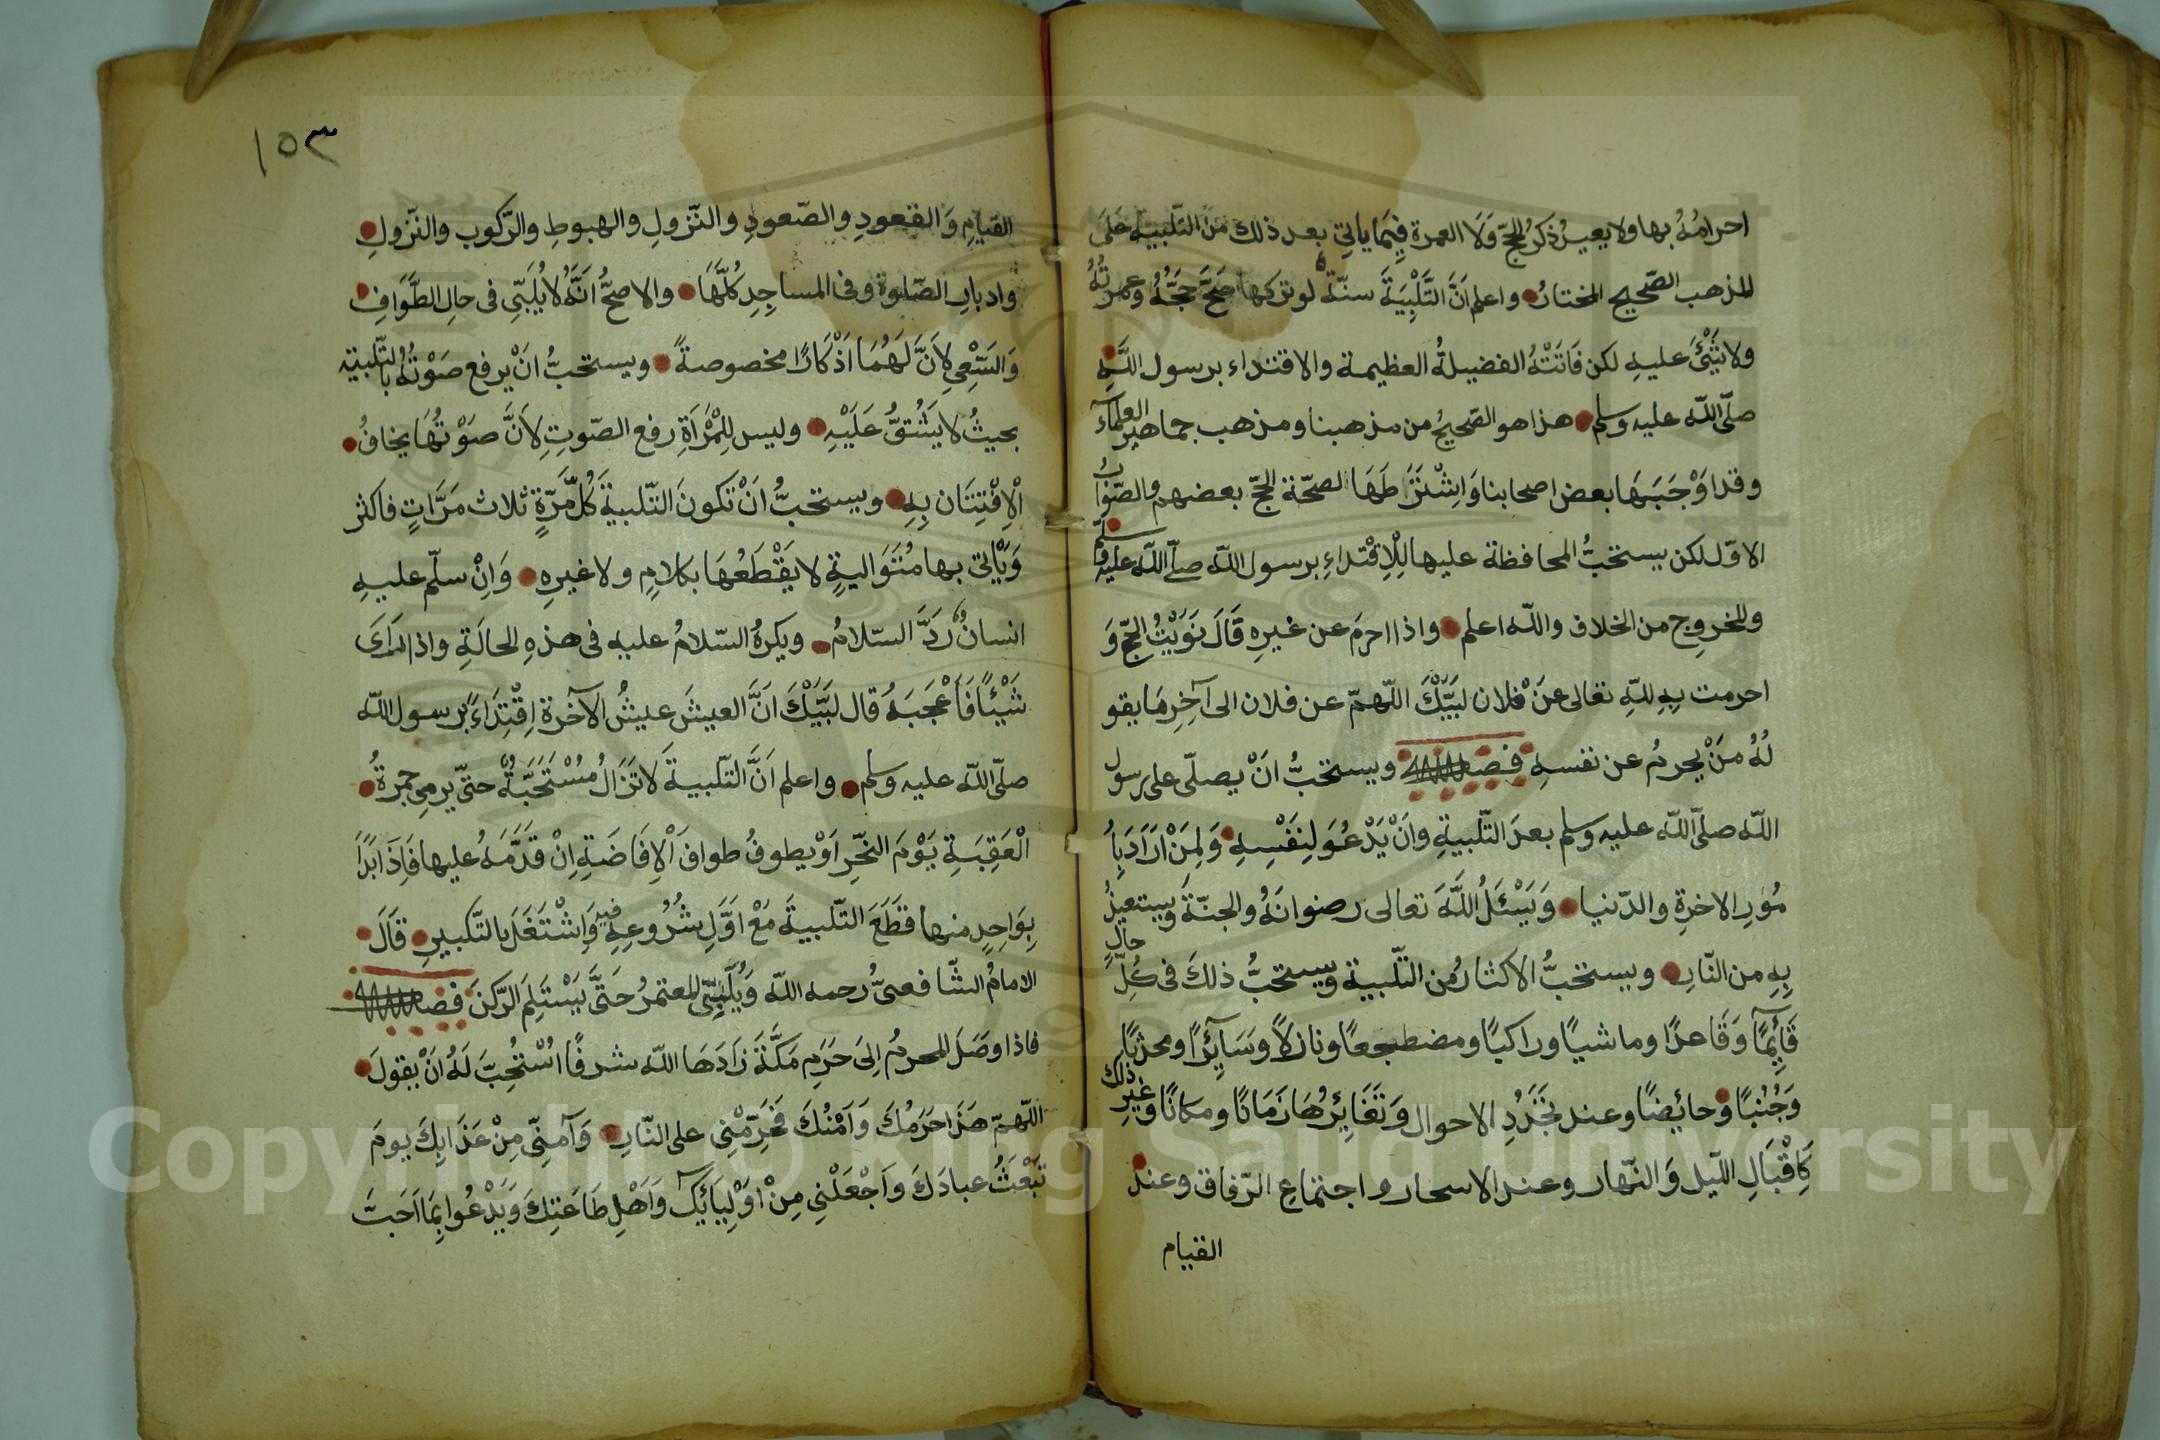 احرامُهُ بها ولا يعيدُ ذكرُ الحجّ وَلَا العمرة فِيمَا ياتِي بعد ذلك مِنَ التّلبية عَلَى
المذهب الصّحيح المختارُ واعلم اَنَّ التَّلْبِيَةَ سنّةٌ لو تركها صَحَّ حَجُّهُ وعمرتُهُ
ولا شَيْئَ عليهِ لكن فَاتَتْهُ الفضيلةُ العظيمة والاقتداء برسول اللَّهِ
صلّى اللّه عليه وسلم هذا هو الصّحيحُ من مذهبنا ومذهب جماهير العلمآء
وقد اَوْجَبَهَا بعض اصحابنا وَاِشْتَرَطَهَا الصحّة الحجّ بعضهم والصّوابُ
الاوّل لكن يستحبُّ المحافظة عليها لِلْاِقْتداءِ برسول اللّه صلّى اللّه عليه وسلّم
وللخروج من الخلاف واللّه اعلم واذا احرمَ عن غيرِه قَالَ نَوَيْتُ الحجّ وَ
احرمت بِهِ للّهِ تعالى عَنْ فلان لبّيْكَ اللّهمّ عن فلان الى آخِرِ مَا يقو
لُهُ مَنْ يحرمُ عن نفسهِ فصل ويستحبُّ انْ يصلّى على رسول
اللّه صلّى اللّه عليه وسلم بعدَ التّلبيةِ وانْ يَدْعُوَ لِنَفْسِهِ وَلِمَنْ اَرَادَ بِاُ
مُورِ الاخرةِ والدّنيا وَيَسْئَلُ اللَّهَ تعالى رضوانَهُ والجنّةَ ويستعيذُ
بِهِ من النّارِ ويستحبُّ الاكثارُ من التّلبية ويستحبُّ ذلكَ فى كُلّ حالٍ
قَآئِمًا وَقَاعدًا وماشيًا وراكبًا ومضطجعًا ونازلًا وَسَآئِرًا ومحدثًا
وَجُنُبًا وحائِضًا وعند تجَدُّدِ الاحوال وَتَغَايُرِهَا زَمَانًا ومكانًا وغَيرِ ذلك
كَاِقْبَالِ اللّيل وَالنّهار وعند الاسحار واجتماعِ الرّفاق وعند
القيام
١٥٣
القيامِ وَالقعودِ والصّعودِ والنّزولِ والهبوطِ والرّكوب والنّزولِ
وادبارِ الصّلوة وفى المساجِدِ كُلِّهَا والاصحُّ اَنَّهُ لَا يُلَبّي فى حالِ الطَّوَافِ
وَالسَّعْيِ لِاَنَّ لَهُمَا اَذْكَارًا مخصوصةً ويستحبُّ انْ يرفع صَوْتَهُ بالتّلبية
بحيثُ لا يَشُقُّ عَلَيْهِ وليس لِلمْرأَةِ رفع الصّوتِ لِاَنَّ صَوْتَهَا يخافُ
اْلاِفْتِتَان بِهِ ويستحبُّ انْ تكونَ التّلبيةَ كُلّ مَرّةٍ ثلاث مَرَّاتٍ فاكثر
وَيَأْتى بها مُتَوَاليةٍ لا يَقْطَعُهَا بكلامٍ ولا غيرِهِ وَاِنْ سلّم عليهِ
انسانٌ رَدَّ السّلامُ ويكرهُ السّلامُ عليهِ فى هذهِ الحالَةِ واذا رَاَى
شَيْئًا فَاَعْجَبَهُ قال لبّيْكَ اَنَّ العيشَ عيشُ الآخرة اِقْتِدَاءً برسول اللّه
صلّى اللّه عليه وسلم واعلم اَنَّ التّلبيةَ لا تَزَالُ مُسْتَحَبَّةٌ حتىّ يرمِي جمرةُ
الْعَقِبَةِ يَوْمَ النّحْرِ اَوْ يطوفُ طواف اْلاِفَاضَةِ اِنْ قَدَّمَهُ عليها فَاِذَا بَدَاَ
بِوَاحِدٍ منها قَطَعَ التّلبيةَ مَعْ اَوَّلِ شُرُوعِهِ فيهِ وَاِشْتَغَلَ بالتّكبيرِ قَالَ
الامامُ الشّافعىُّ رحمه اللّه وَيُلَبِّى المعتمرُ حَتىَّ يَسْتَلِمَ الرّكنَ فصل
فاذا وصَلَ المحرمُ اِلىَ حَرَمِ مَكَّةَ زَادَهَا اللّه شرفًا اُسْتُحِبَّ لَهُ اَنْ يقولَ
اللّهمّ هَذَا حَرَمُكَ وَاَمْنُكَ فَحَرِّمْنِي على النّارِ وَآمِنِّى مِنْ عَذَابِكَ يومَ
تَبْعَثُ عبادَكَ وَاَجْعَلْنِي مِنْ اَوْلِيَآئِكَ وَاَهْلِ طَاعَتِكَ وَيَدْعُوا بِمَا اَحَبَّ
Copyright © King Saud University